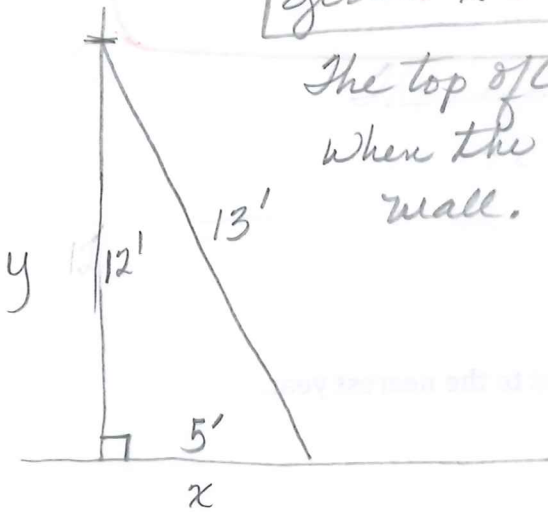 The top of
When the
wall.
13'
y
12'
5'
x